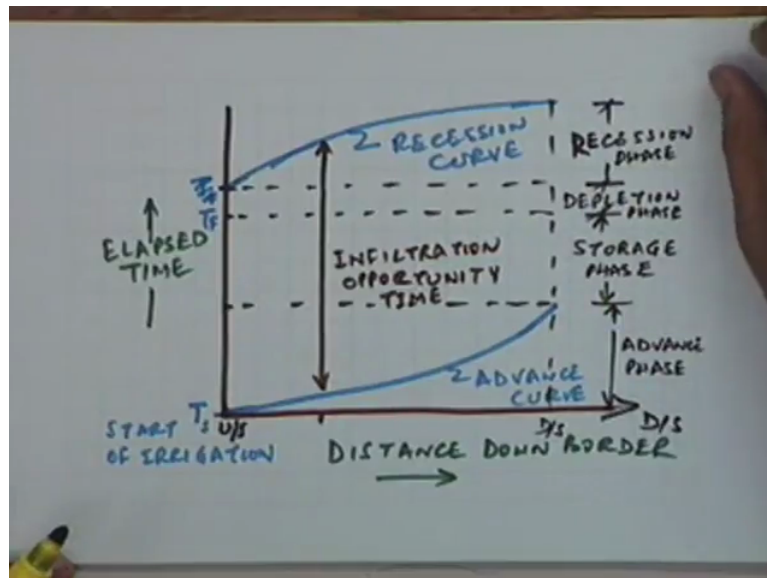 RECESSION
CURVE
RECESSION
PHASE
DEPLETION
PHASE
STORAGE
PHASE
ELAPSED
TIME
INFILTRATION
OPPORTUNITY
TIME
ADVANCE
PHASE
ADVANCE
CURVE
Ts U/S
D/S
D/S
START
OF IRRIGATION
DISTANCE DOWN BORDER